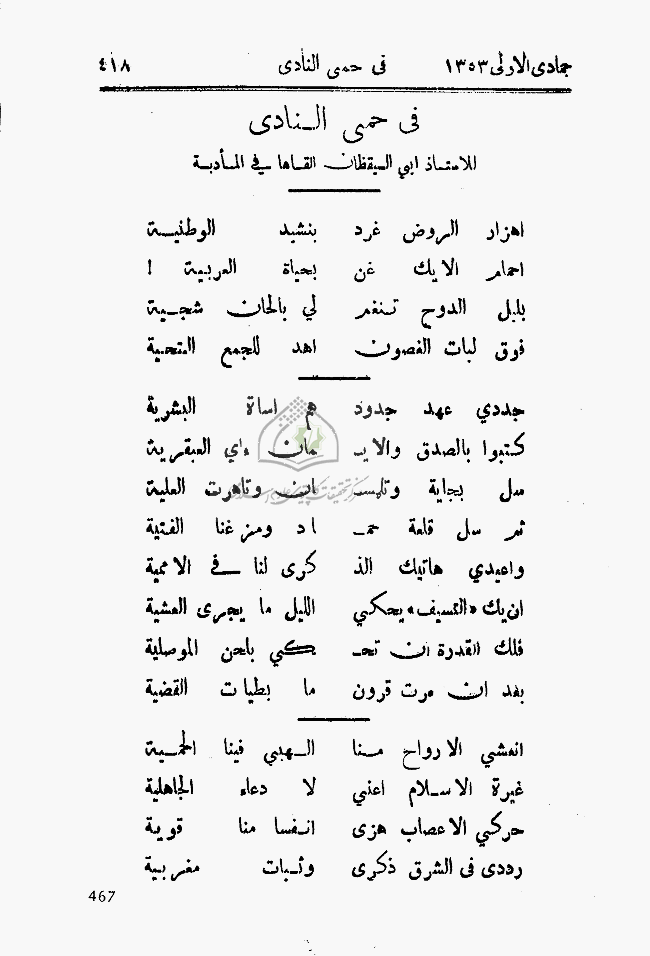 جمادى الاولى ١٣٥٣ في حمى النادى ٤١٨
في حمى النادى
للاستاذ ابي اليقظان القاها في المأدبة
اهزار الروض غرد بنشيد الوطنية
احمام الايك غن بحياة العربية !
بلبل الدوح تنغم لي بالحان شجية
فوق لبات الغصون اهد للجمع التحية
جددي عهد جدود هم اساة البشرية
كتبوا بالصدق والايـ ـمان ءاي العبقرية
سل بجاية وتلمسـ ـان وتاهرت العلية
ثم سل قلعة حمـ ـاد ومزغنا الفتية
واعيدي هاتيك الذ كرى لنا في الاممية
ان يك «التمسيف» يحكي الليل ما يجرى العشية
فلك القدرة ان تحـ ـكي بلحن الموصلية
بعد ان مرت قرون ما بطيات القضية
انعشي الارواح منا الهبي فينا الحمية
غيرة الاسلام اعني لا دعاء الجاهلية
حركي الاعصاب هزى انفسا منا قوية
رددى فى الشرق ذكرى وثبات مغربية
467